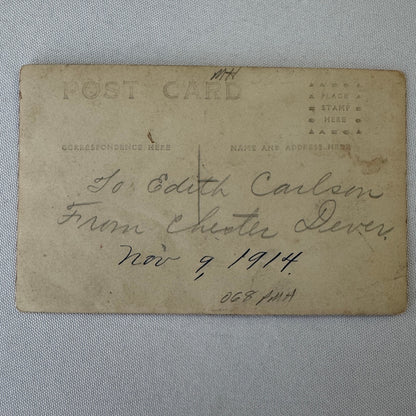 MH
POST CARD
PLACE
STAMP
HERE
CORRESPONDENCE HERE
NAME AND ADDRESS HERE
To Edith Carlson
From Chester Dever
Nov 9, 1914
068 AMH